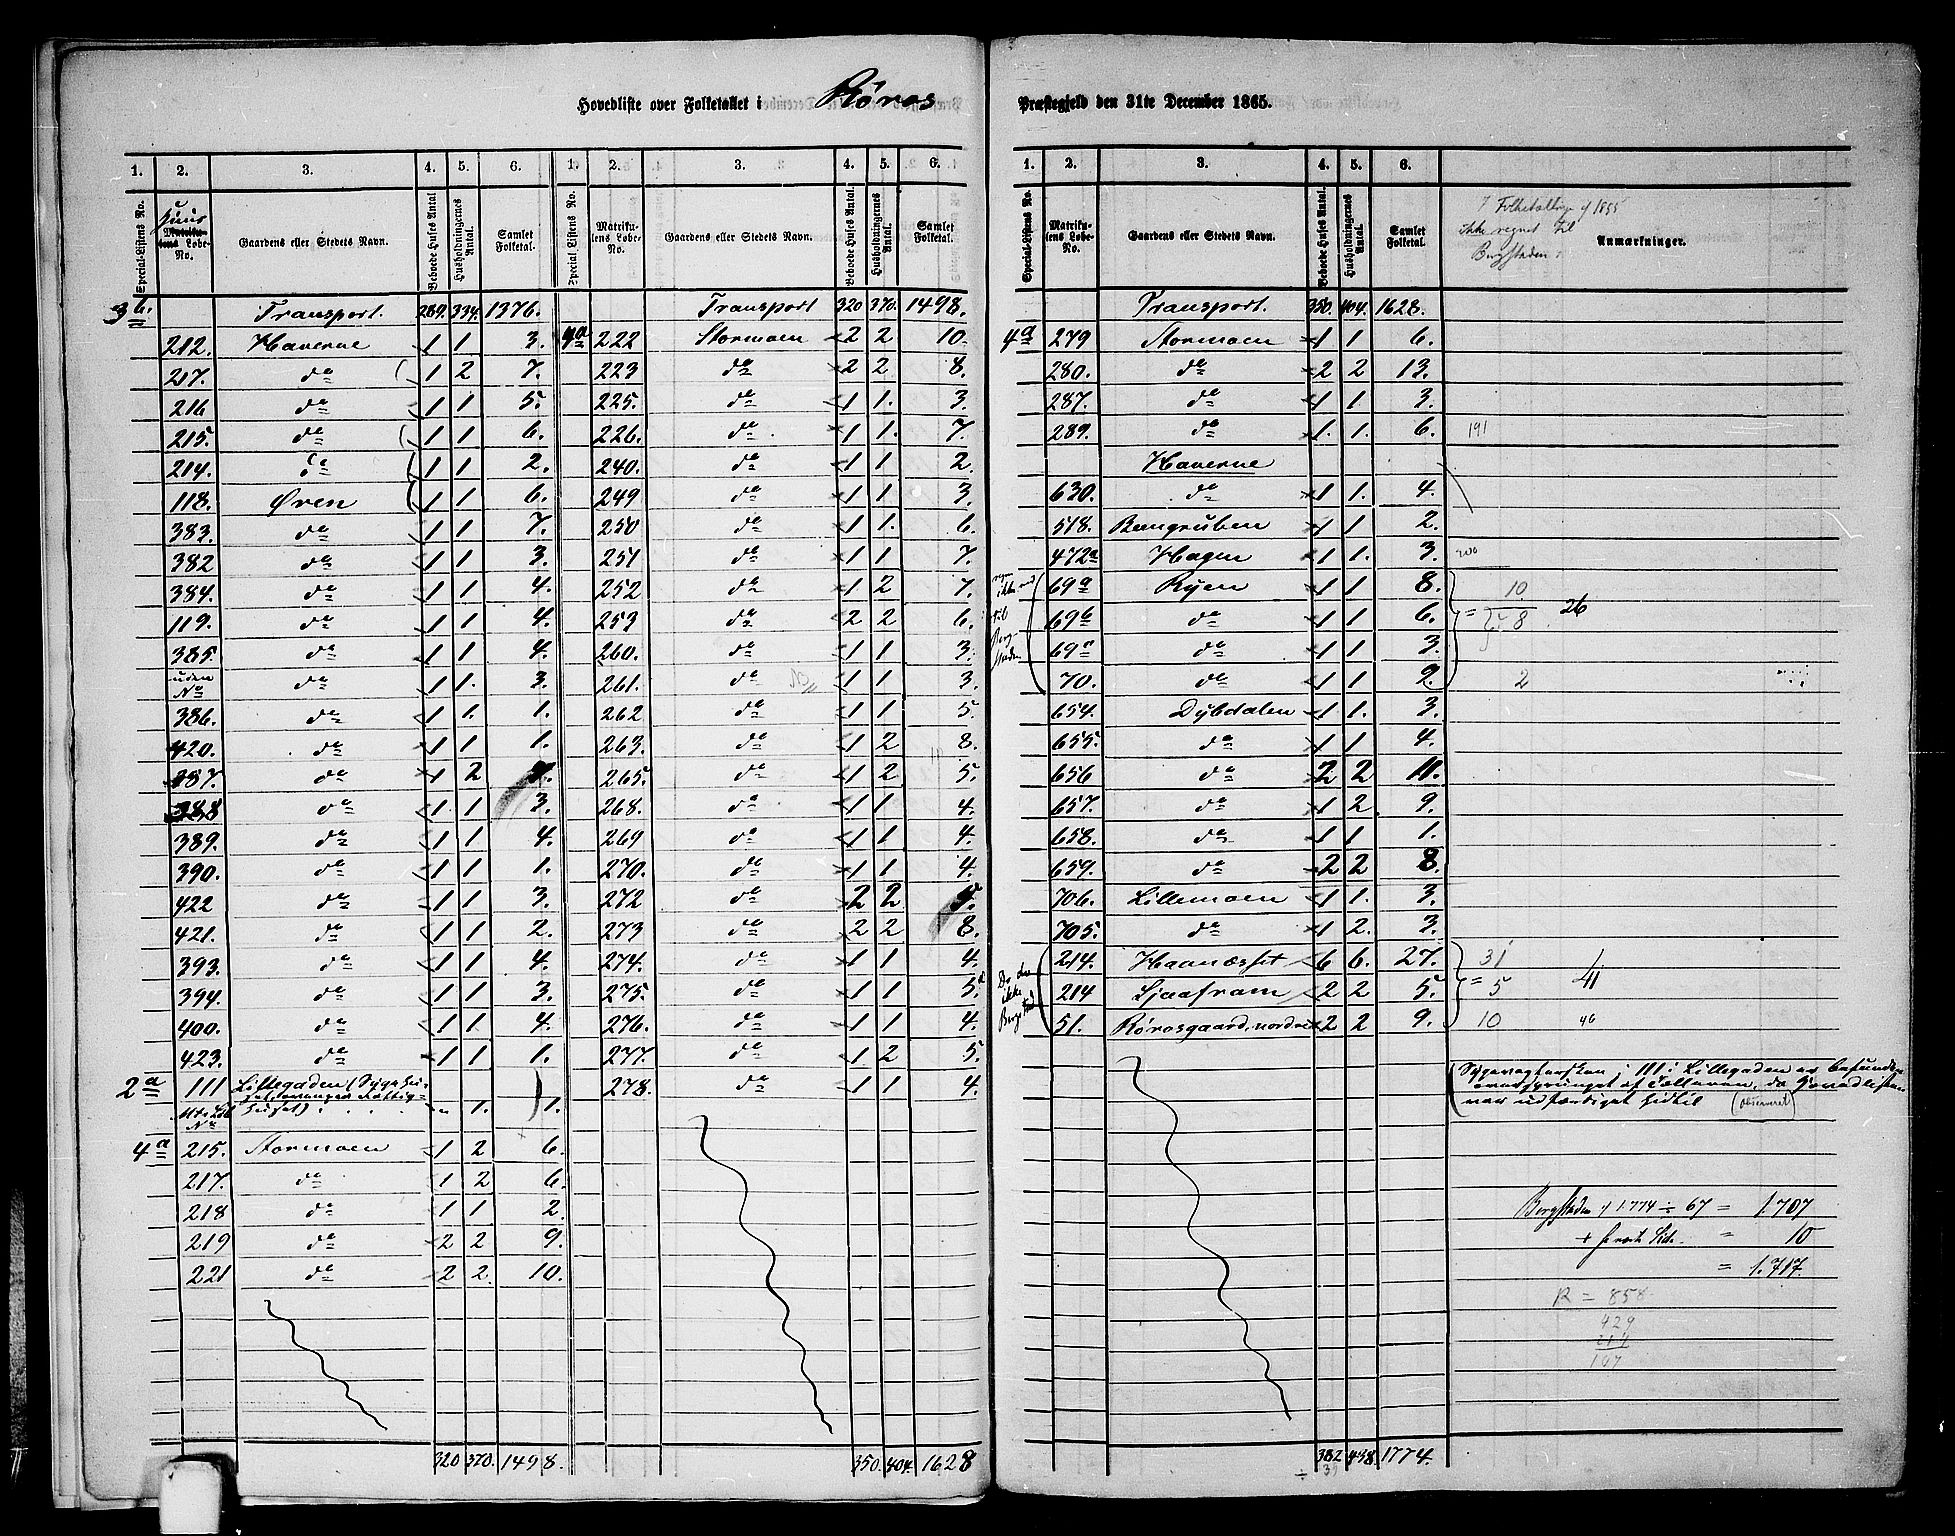 Hovedliste over Folketallet i Röros Præstegjeld den 31te December 1865.
1. 2. 3. 4. 5. 6. 1. 2. 3. 4. 5. 6.
Special-Listens No. Huus Matrikulens Lobe-No. Gaardens eller Stedets Navn. Beboede Huses Antal Husholdningernes Antal. Samlet Folketal. Special Listens No. Matrikulens Lobe-No. Gaardens eller Stedets Navn. Beboede Huses Antal. Husholdningernes Antal. Samlet Folketal.
3 b. Transport. 289. 334. 1376. Transport 320 370. 1498.
212. Haverne 1 1 3. 4a 222 Stormoen 2 2 10.
217. do 1 2 7. 223 do 2 2 8.
216 do 1 1 5. 225. do 1 1. 3.
215. do 1 1 6. 226. do 1 1. 7.
214. do 1 1 2. 240. do 1 1 2.
118. Øren 1 1 6. 249 do 1 1 3.
383. do 1 1 7. 250 do 1 1. 6.
382 do 1 1 3. 251 do 1 1 7.
384. do 1 1 4. 252 do 1 2 7.
119. do 1 1 4. 253 do 2 2 6.
385. do 1 1 4. 260. do 1 1 3.
uden No do 1 1. 3. 261. do 1 1 3.
386. do 1 1. 1. 262 do 1 1 5.
420. do 1 1 1. 263. do 1 2 8.
387. do 1 2 265. do 1 2 5.
388 do 1 1 3. 268. do 1 1 4.
389. do 1 1 4. 269 do 1 1 4.
390. do 1 1 1. 270. do 1 1 4.
422 do 1 1 3. 272 do 2 2
421. do 1 1 2. 273 do 2 2 8.
393. do 1 1 4. 274. do 1 1 4.
394. do 1 1 3. 275. do 1 1 5.
400. do 1 1 4. 276. do 1 1 4.
423. do 1 1 1. 277. do 1 2 5.
2 a 111 Lillegaden (Sygehu- 278. do 1 1 4.
huset) 1. 1.
4 a 215. Stormoen 1 2 6.
217. do 1 2 6.
218 do 1 1 2.
219 do 2 2 9.
221 do 2 2. 10.
320 370. 1498. 350. 404. 1628
1. 2. 3. 4. 5. 6.
Special-Listens No. Matrikulens Lobe-No. Gaardens eller Stedets Navn. Beboede Huses Antal. Husholdningernes Antal. Samlet Folketal. Anmærkninger.
ikke regnet til
Bergstaden
Transport. 350. 404. 1628.
4 a 279 Stormoen 1 1 6.
280. do 2 2 13.
287. do 1 1 3.
289. do 1. 1. 6. 191
Haverne
630. do 1 1. 4.
518. 1 1 2.
472a Hagen 1 1. 3. 200
69a Ryen 1 1 8. 10
69b do 1 1 6. = 8 26
69c do 1 1 3.
70. do 1 1 2. 2
ikke
til
Berg-
staden
654. Dybdalen 1 1. 3.
655. do 1 1 4.
656 do 2 2 11.
657. do 1 2 9.
658. do 1 1 1.
659. do 2 2 8.
706. Lillemoen 1 1. 3.
705. do 1 2. 3.
214. Haanæsset 6 6. 27. 31
214 Sjaafram 2 2 5. = 5 41
51. Rörosgaard, nordre 2 2 9. 10 46
ikke
Sygevogtersken i 111 i Lillegaden er befunden
oversprunget af Tælleren, da Hovedlisten
var udfærdiget hidtil
Bergstaden 1.774 ÷ 67 = 1.707
+ = 10
= 1.717.
= 858
429
382 438 1774.